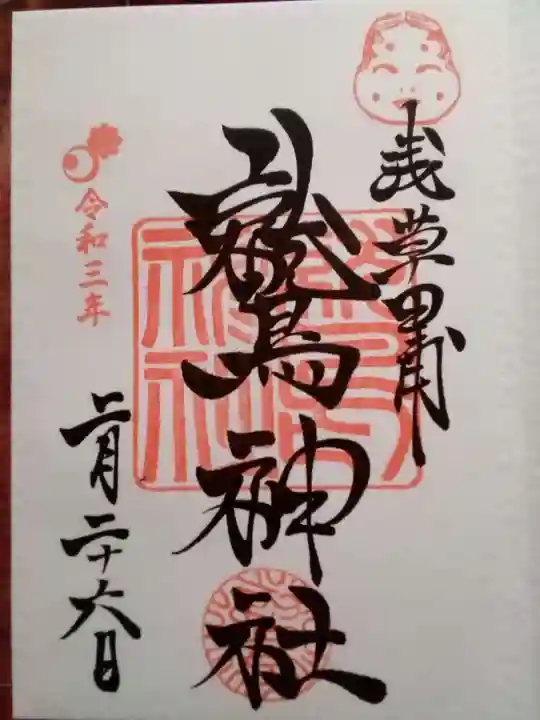 浅草田甫
鷲神社
令和三年
二月二十六日